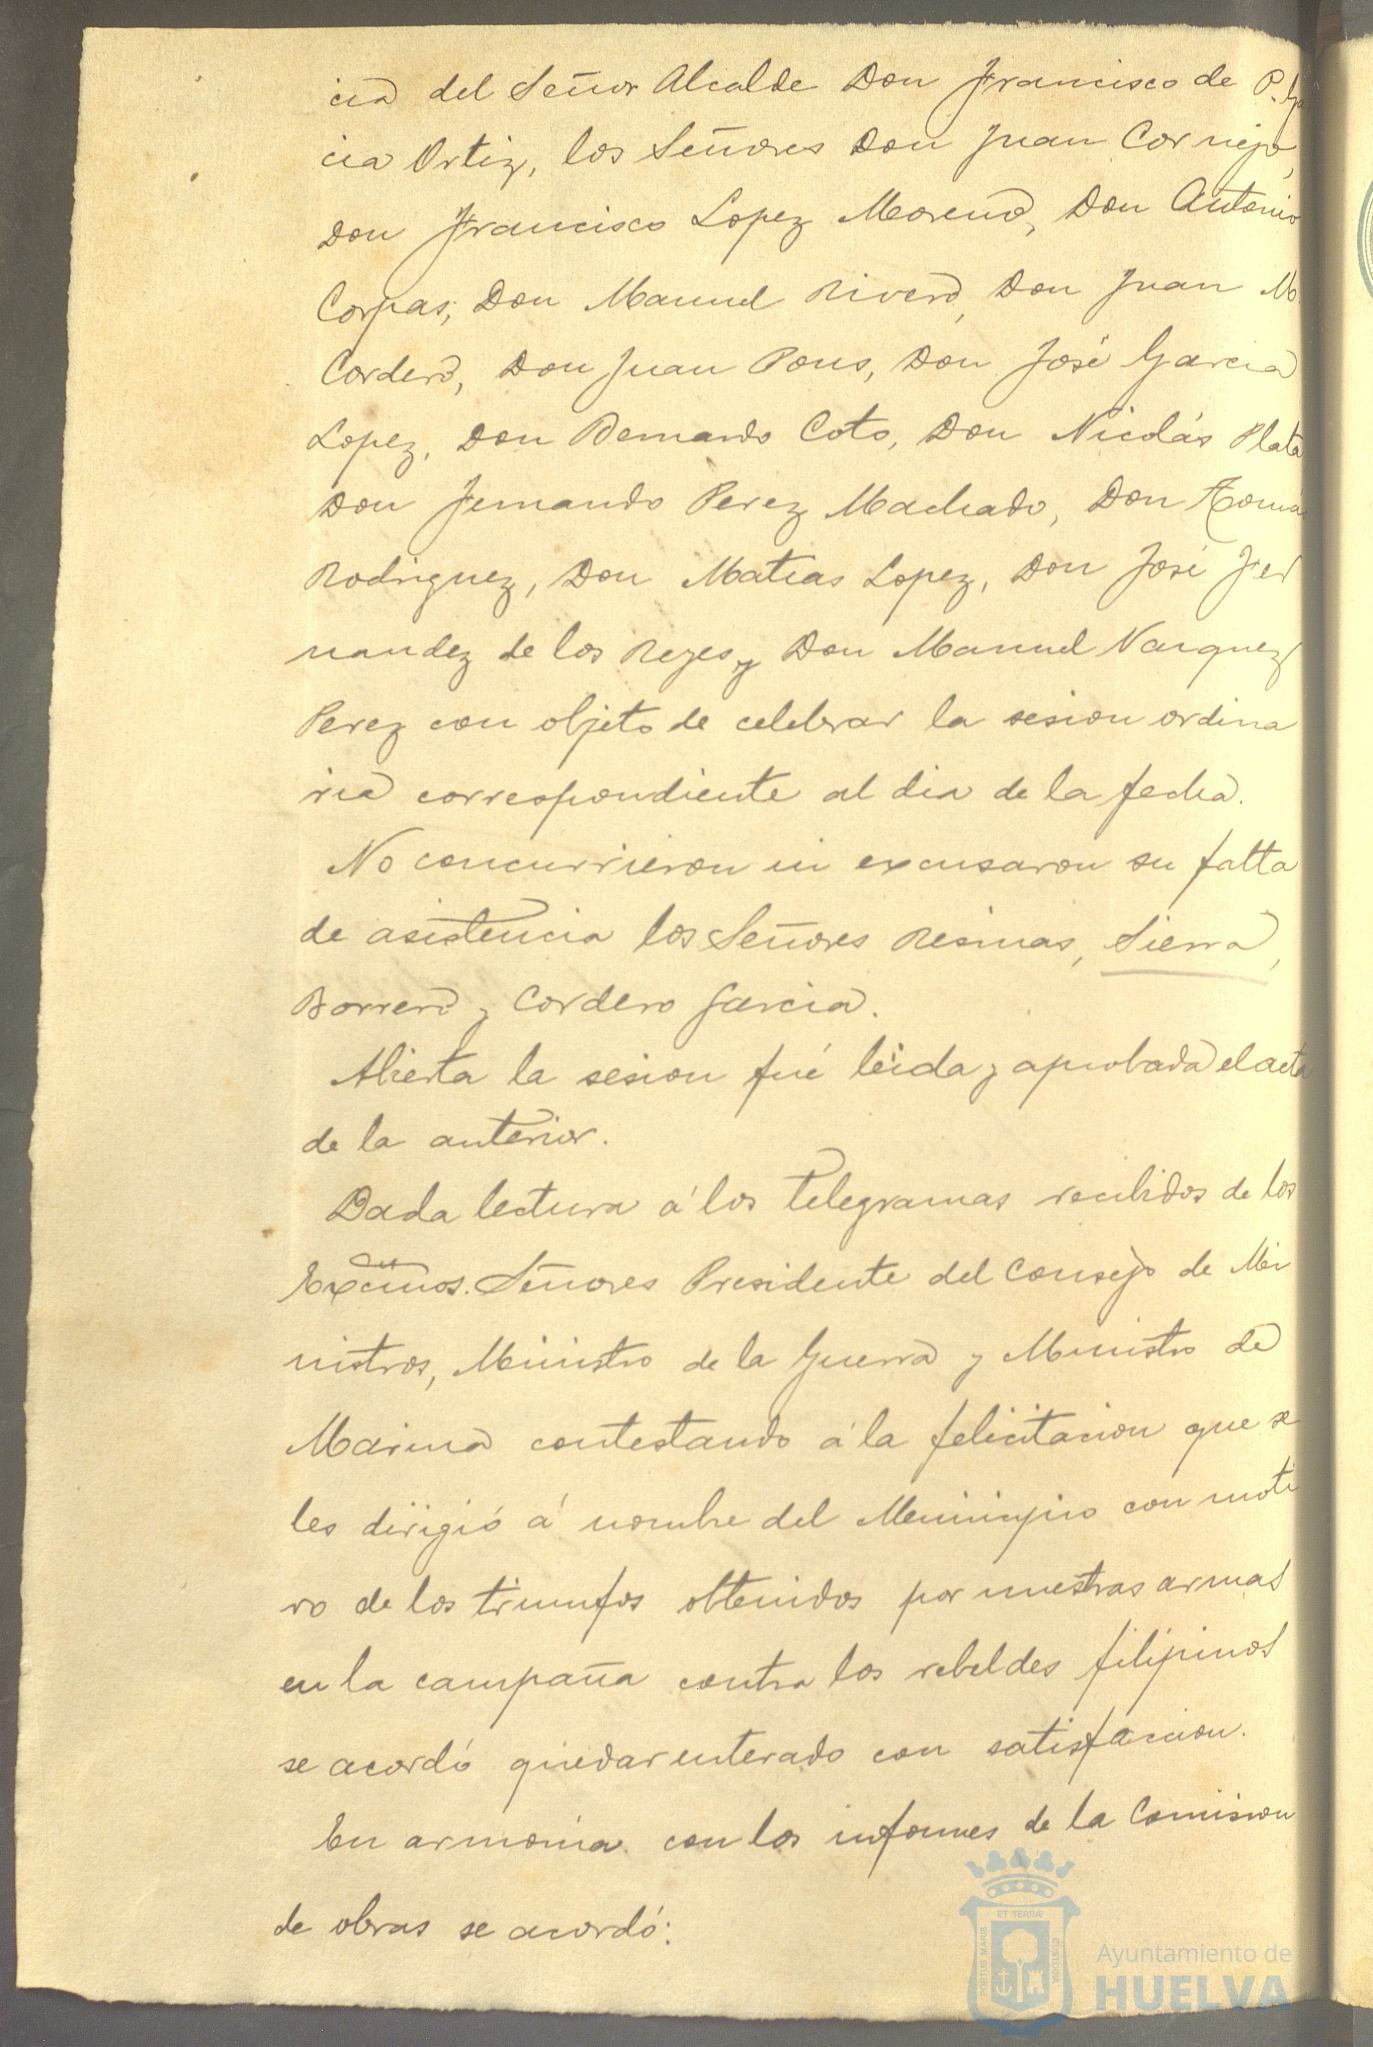 cia del Señor Alcalde Don Francisco de P. Ga
cia Ortiz, los Señores Don Juan Cornejo,
Don Francisco Lopez Moreno, Don Antonio
Corpas, Don Manuel Rivero, Don Juan M.
Cordero, Don Juan Pons, Don José Garcia
Lopez, Don Bernardo Coto, Don Nicolás Plata
Don Fernando Perez Machado, Don Tomás
Rodriguez, Don Matias Lopez, Don José Fer
nandez de los Reyes y Don Manuel Vazquez
Perez con objeto de celebrar la sesion ordina
ria correspondiente al dia de la fecha.
No concurrieron ni excusaron su falta
de asistencia los Señores Resinas, Sierra,
Borrero y Cordero Garcia.
Abierta la sesion fué leida y aprobada el acta
de la anterior.
Dada lectura á los telegramas recibidos de los
Excmos. Señores Presidente del Consejo de Mi
nistros, Ministro de la Guerra y Ministro de
Marina contestando á la felicitacion que se
les dirigió á nombre del Municipio con moti
vo de los triunfos obtenidos por nuestras armas
en la campaña contra los rebeldes filipinos
se acordó quedar enterado con satisfaccion.
En armonia con los informes de la Comision
de obras se acordó:
PORTUS MARIS ET TERRÆ CUSTODIA
Ayuntamiento de
HUELVA